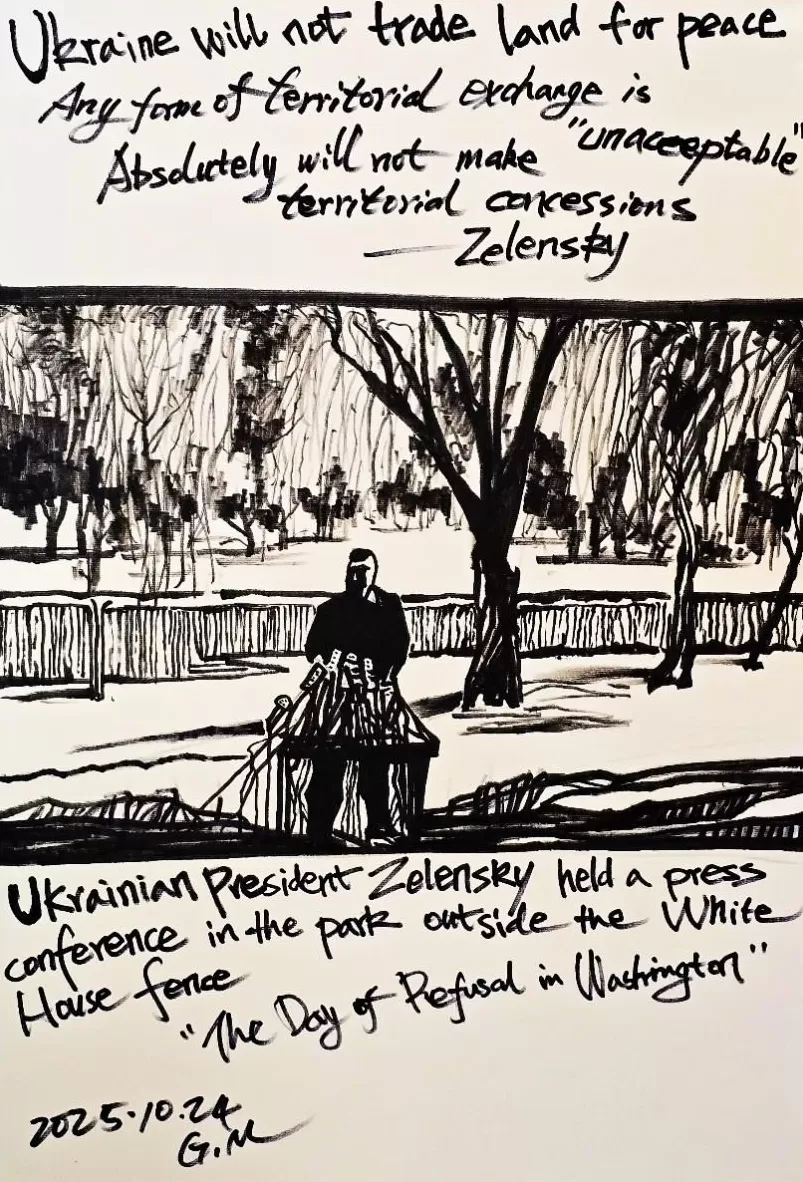 Ukraine will not trade land for peace
Any form of territorial exchange is
"unaceeptable"
Absolutely will not make
territorial concessions
— Zelensky
Ukrainian President Zelensky held a press
conference in the park outside the White
House fence
"The Day of Refusal in Washington"
2025.10.24
G.M